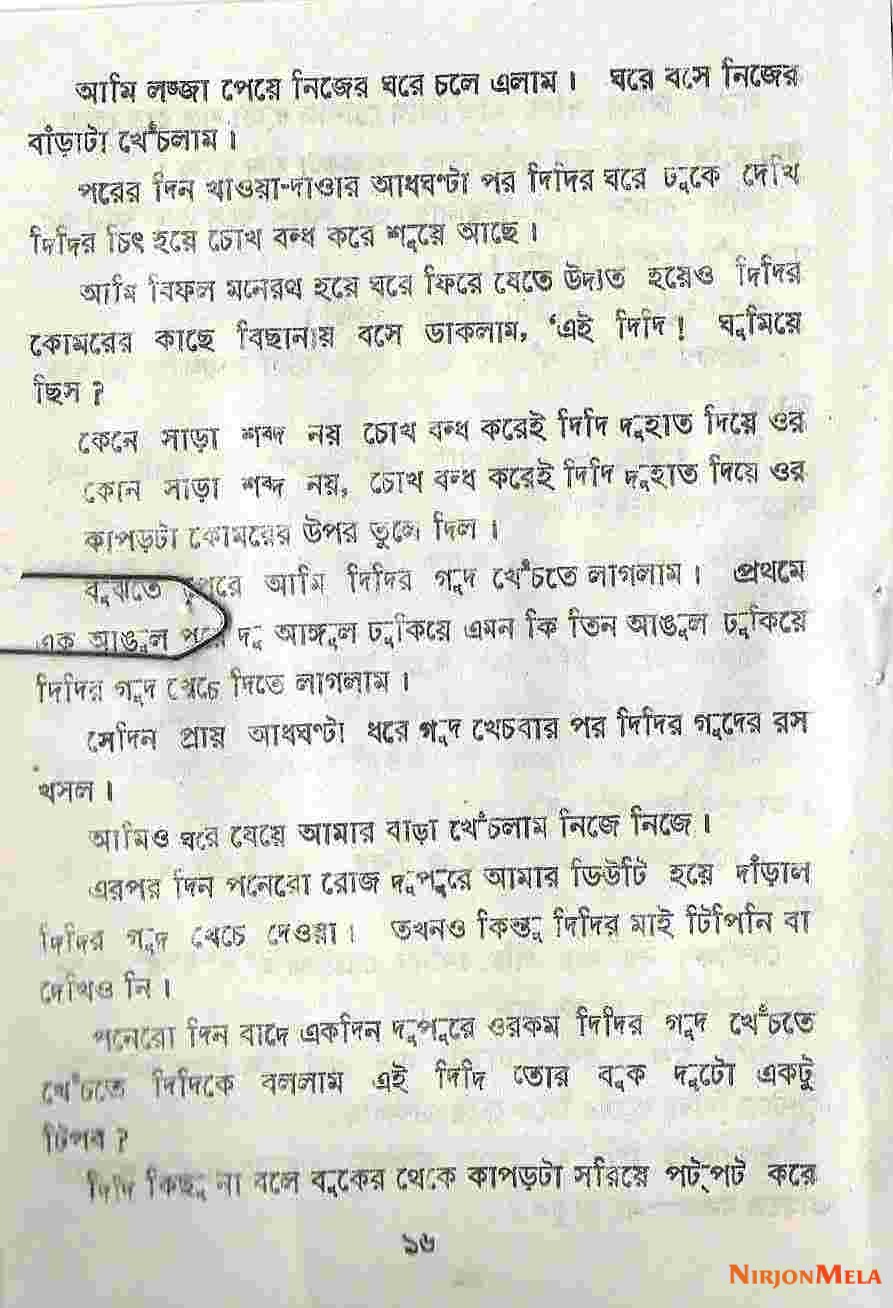 আমি লজ্জা পেয়ে নিজের ঘরে চলে এলাম। ঘরে বসে নিজের
বাঁড়াটা খেঁচলাম।
পরের দিন খাওয়া-দাওার আধঘণ্টা পর দিদির ঘরে ঢুকে দেখি
দিদির চিৎ হয়ে চোখ বন্ধ করে শুয়ে আছে।
আমি বিফল মনেরথ হয়ে ঘরে ফিরে যেতে উদ্যত হয়েও দিদির
কোমরের কাছে বিছানায় বসে ডাকলাম, ‘এই দিদি! ঘুমিয়ে
ছিস?
কেনে সাড়া শব্দ নয় চোখ বন্ধ করেই দিদি দুহাত দিয়ে ওর
কোন সাড়া শব্দ নয়, চোখ বন্ধ করেই দিদি দুহাত দিয়ে ওর
কাপড়টা কোমরের উপর তুলে দিল।
বুঝতে আমি দিদির গুদ খেঁচতে লাগলাম। প্রথমে
এক আঙুল দু আঙ্গুল ঢুকিয়ে এমন কি তিন আঙুল ঢুকিয়ে
দিদির গুদ খেচে দিতে লাগলাম।
সেদিন প্রায় আধঘণ্টা ধরে গুদ খেচবার পর দিদির গুদের রস
খসল।
আমিও ঘরে যেয়ে আমার বাড়া খেঁচলাম নিজে নিজে।
এরপর দিন পনেরো রোজ দুপুরে আমার ডিউটি হয়ে দাঁড়াল
দিদির গুদ খেচে দেওয়া। তখনও কিন্তু দিদির মাই টিপিনি বা
দেখিও নি।
পনেরো দিন বাদে একদিন দুপুরে ওরকম দিদির গুদ খেঁচতে
খেঁচতে দিদিকে বললাম এই দিদি তোর বুক দুটো একটু
টিপব?
দিদি কিছু না বলে বুকের থেকে কাপড়টা সরিয়ে পট্‌পট করে
১৬
NIRJONMELA